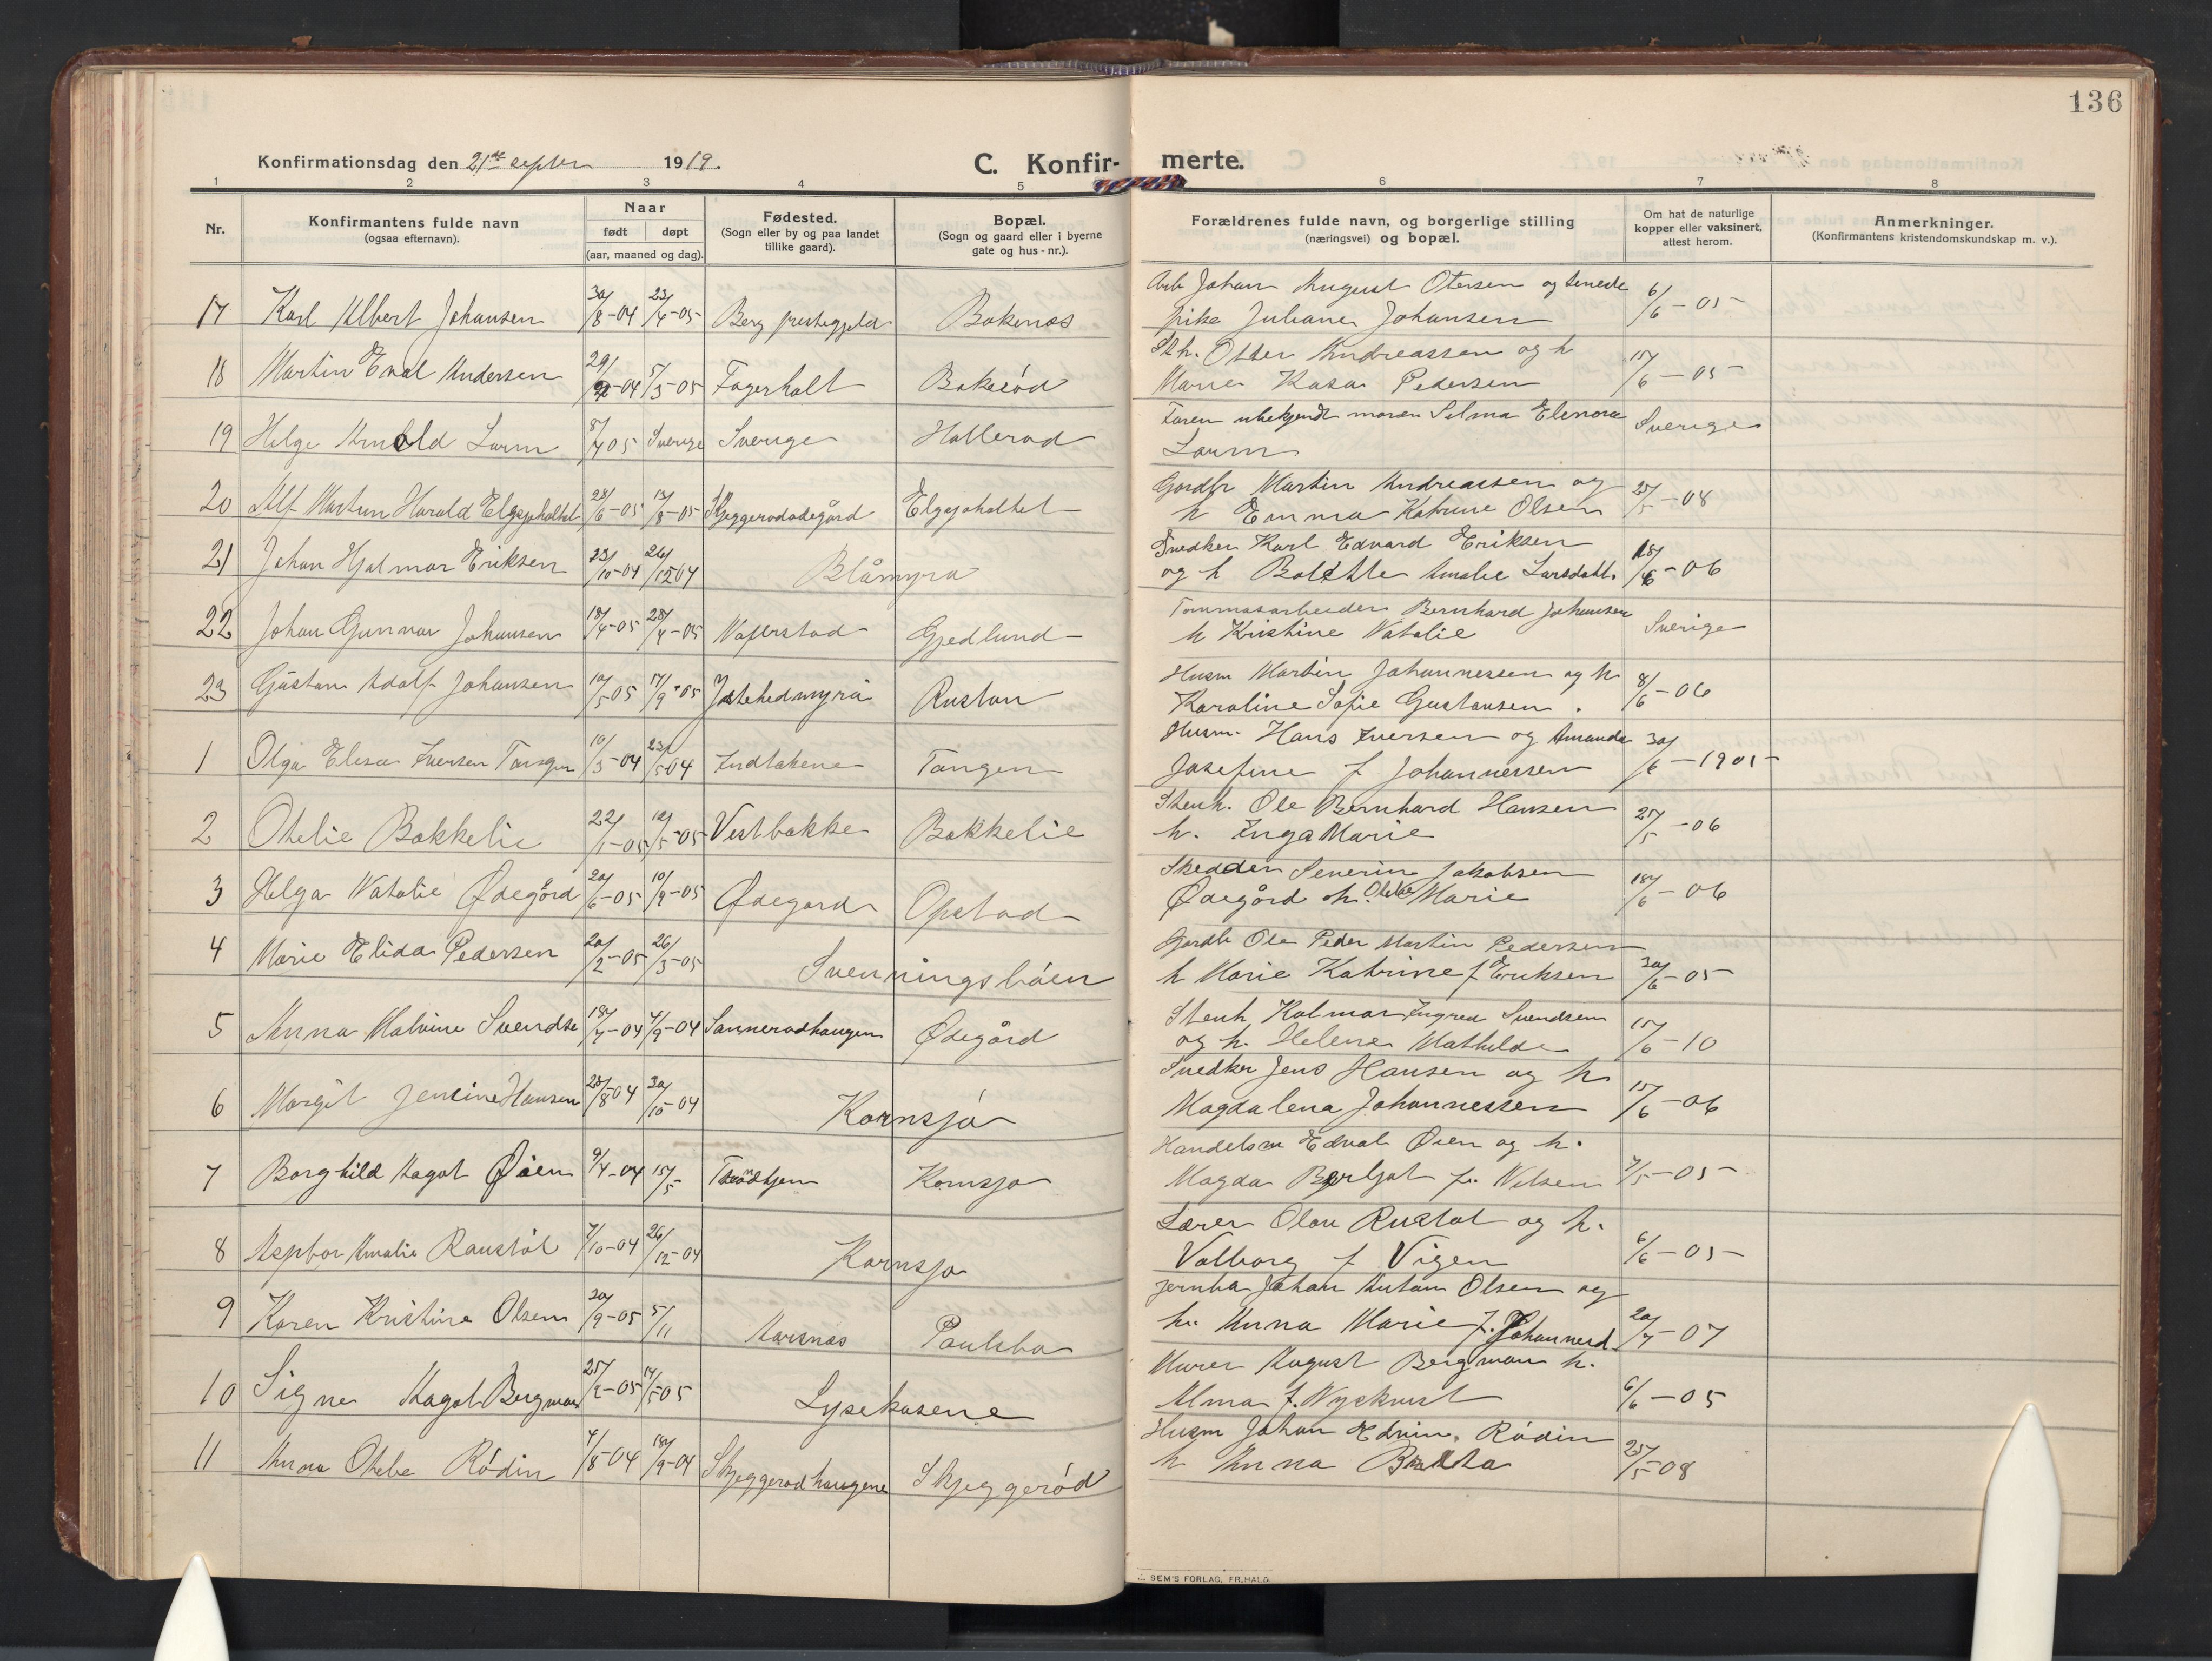 136
Konfirmationsdag den 21de septbr 1919.
C. Konfir- merte.
1 2 3 4 5 6 7 8
Nr.
Konfirmantens fulde navn
(ogsaa efternavn).
Naar
født døpt
(aar, maaned og dag).
Fødested.
(Sogn eller by og paa landet
tillike gaard).
Bopæl.
(Sogn og gaard eller i byerne
gate og hus-nr.).
Forældrenes fulde navn, og borgerlige stilling
(næringsvei) og bopæl.
Om hat de naturlige
kopper eller vaksinert,
attest herom.
Anmerkninger.
(Konfirmantens kristendomskundskap m. v.).
17 Karl Albert Johansen 30/8-04 23/4-05 Berg prestegjeld Bakenæs
Arb Johan August Otersen og teneste
pike Juliane Johansen 6/6-05
18 Martin Eval Andersen 29/-04 5/3-05 Fagerholt Bakerød
Sth. Otter Andreassen og h
Marie Kasa Pedersen 15/6-05
19 Helge Arnold Larm 8/4 05 Sverige Sverige Hallerød
Faren ubekjendt moren Selma Elenora
Larm Sverige
20 Alf Martin Harald Elgsjøholtet 28/6-05 13/8-05 Skjeggerødødegård Elgsjøholtet
Gardbr Martin Andreassen og
h Emma Katrine Olsen 25/5-08
21 Johan Hjalmar Eriksen 23/10-04 26/12 04 Blåmyra
Snedker Karl Edvard Eriksen
og h Bolette Amalie Larsdatt. 18/6-06
22 Johan Gunnar Johansen 18/4-05 28/4-05 Naferstad Gjedlund
Tømmerarbeider Bernhard Johansen
h Kristine Natalie Sverige
23 Gustav Adolf Johansen 10/5 05 17/9-05 Jatehedmyra Rustan
Husm Martin Johannessen og h
Karoline Sofie Gustavsen. 8/6-06
1 Olga Elise Iversen Tangen 10/3-04 23/5 04 Indtakene Tangen
Husm. Hans Iversen og Amanda
Josefine f Johannessen 30/6-1905
2 Otelie Bakkelie 22/1-05 12/5-05 Vestbakke Bakkelie
Stenh. Ole Bernhard Hansen
h. Inga Marie 25/5-06
3 Helga Natalie Ødegård 20/6-05 10/9-05 Ødegard Opstad
Skredder Severin Jakobsen
Ødegård h. Otelie Marie 18/6-06
4 Marie Elida Pedersen 20/2-05 26/3-05 Svenningsbøen
Gardb Ole Peder Martin Pedersen
h Marie Katrine f Eriksen 30/6-05
5 Anna Malvine Svendse 18/7-04 4/9-04 Sannerødhaugen Ødegård
Stenh Kalmar Ingred Svendsen
og h. Helene Mathilde 15/6-10
6 Margit Jensine Hansen 28/8 04 30/10-04 Kornsjø
Snedker Jens Hansen og h
Magdalena Johannessen 15/6-06
7 Borghild Aagot Øien 9/4-04 15/5 Kornsjø
Handelsm Edval Øien og h.
Magda Bergljot f. Nilsen 7/5-05
8 Aspbor Amalie Raustøl 7/10-04 26/12-04 Kornsjø
Lærer Olav Rustøl og h.
Valborg f Vigen 6/6-05
9 Karen Kristine Olsen 30/9-05 5/11 Aarsnæs Paulsbo
Jernba Johan Anton Olsen og
h. Anna Marie f. Johannesd 20/7-07
10 Signe Aagot Bergman 25/2-05 14/5 05 Lysekasene
Murer August Bergman h.
Alma f. Nyckvist 6/6-05
11 Anna Otelie Rødin 4/8-04 18/9-04 Skjeggerødhaugene Skjeggerød
Husm Johan Edvin Rødin
h Anna Britta 25/5-08
SEM'S FORLAG, FR.HALD.